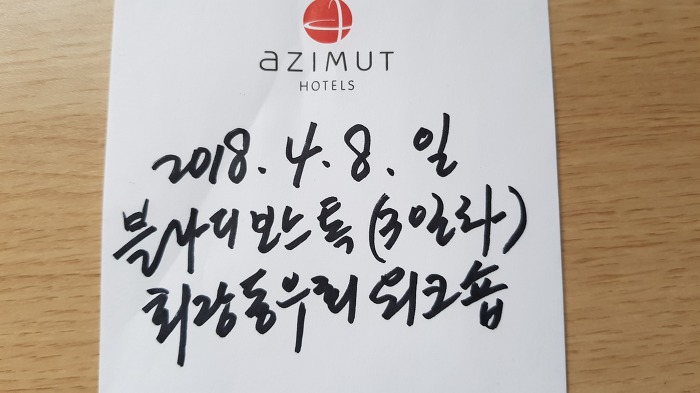 azimut
HOTELS
2018. 4. 8. 일
블라디보스톡 (3일차)
회랑동우회 워크숍